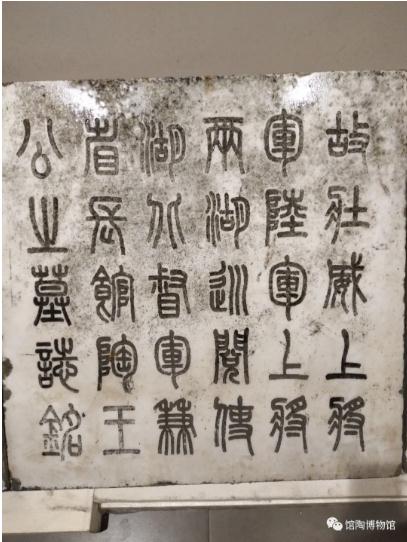 故壯威上將
軍陸軍上將
兩湖巡閱使
湖北督軍兼
省長館陶王
公之墓誌銘
馆陶博物馆